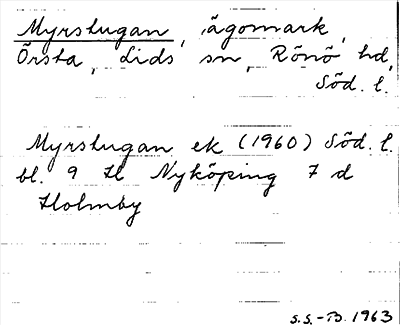 Myrstugan, ägomark,
Örsta, Lids sn, Rönö hd,
Söd. l.
Myrstugan ek (1960) Söd. l.
bl. 9 H Nyköping 7 d
Holmby
S.S.-B. 1963